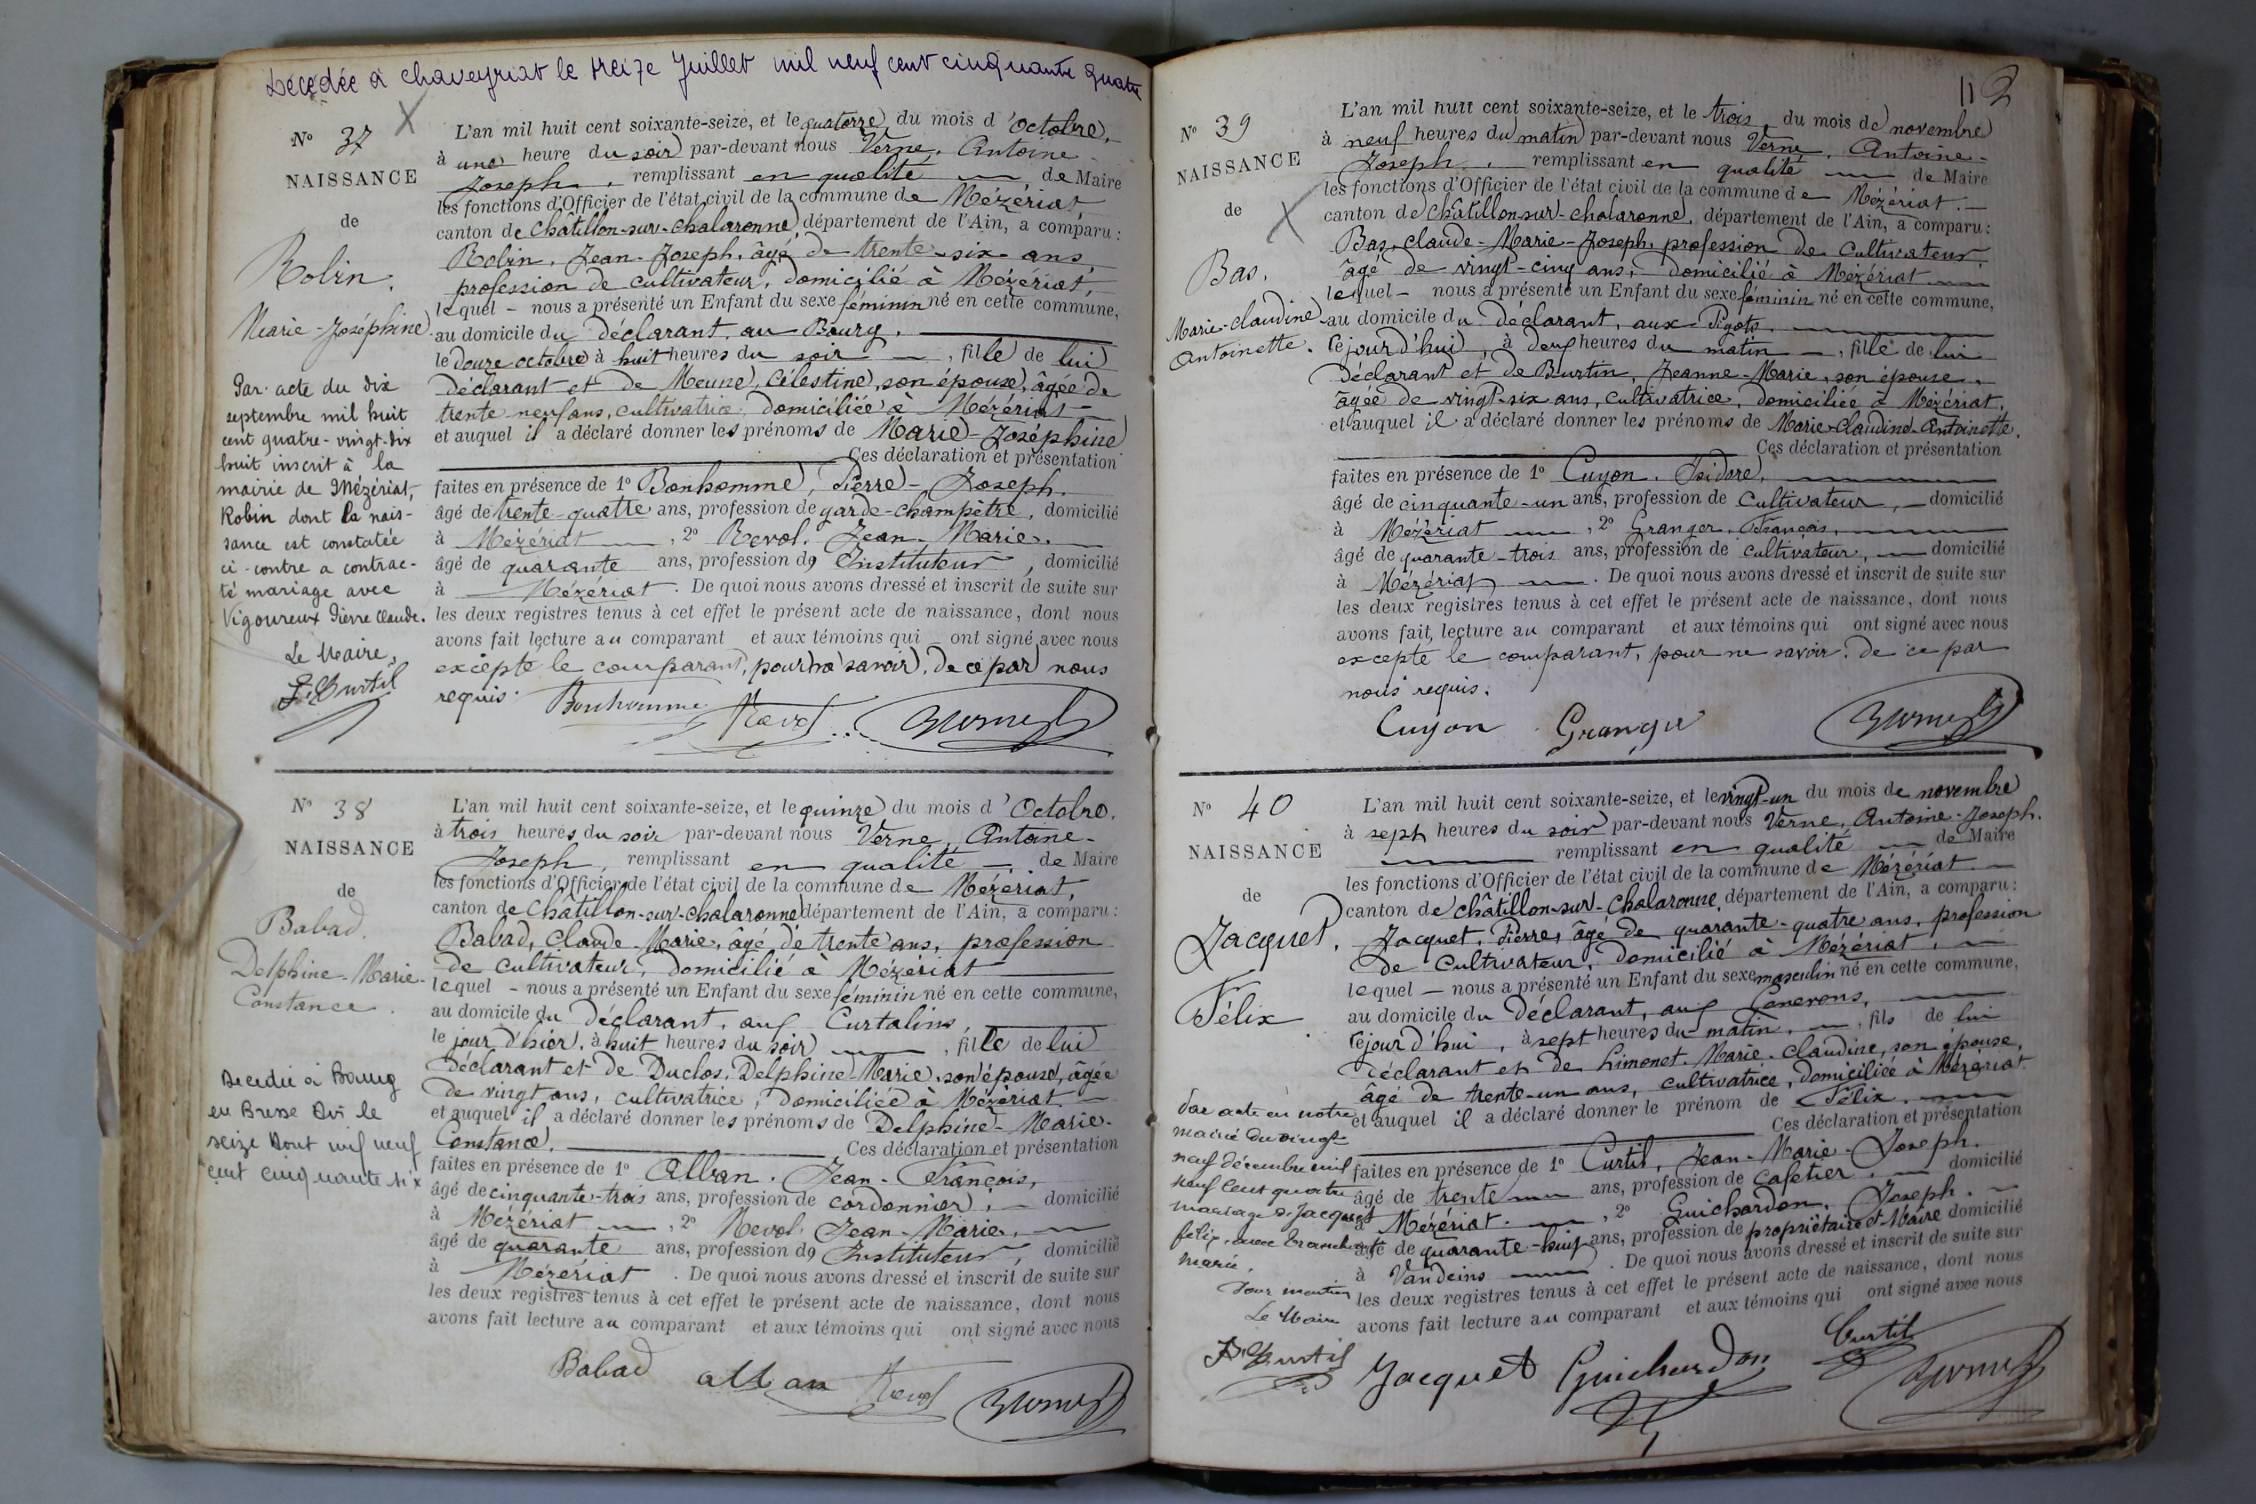 Décédée à Chaveyriat le treize Juillet mil neuf cent cinquante quatre
N° 37
NAISSANCE
de
Robin.
Marie-Joséphine.
Par acte du dix
septembre mil huit
cent quatre-vingt-dix
huit inscrit à la
mairie de Mézériat,
Robin dont la nais-
sance est constatée
ci-contre a contrac-
té mariage avec
Vigoureux Pierre Claude.
Le Maire,
L'an mil huit cent soixante-seize, et le quatorze du mois d'Octobre,
à une heure du soir par-devant nous Verne, Antoine-
Joseph, remplissant en qualité de Maire
les fonctions d'Officier de l'état civil de la commune de Mézériat,
canton de Châtillon-sur-chalaronne, département de l'Ain, a comparu :
Robin, Jean-Joseph, âgé de trente-six ans,
profession de cultivateur, domicilié à Mézériat,
lequel – nous a présenté un Enfant du sexe féminin né en cette commune,
au domicile du déclarant, au Bourg.
le douze octobre à huit heures du soir, fille de lui
déclarant et de Meune, Célestine, son épouse, âgée de
trente-neuf ans, cultivatrice, domiciliée à Mézériat
et auquel il a déclaré donner les prénoms de Marie-Joséphine
Ces déclaration et présentation
faites en présence de 1° Bonhomme, Pierre-Joseph.
âgé de trente-quatre ans, profession de garde-champêtre, domicilié
à Mézériat, 2° Revol, Jean-Marie.
âgé de quarante ans, profession d' Instituteur, domicilié
à Mézériat. De quoi nous avons dressé et inscrit de suite sur
les deux registres tenus à cet effet le présent acte de naissance, dont nous
avons fait lecture au comparant et aux témoins qui ont signé avec nous
excepte le comparant, pour ne savoir, de ce par nous
requis.
Bonhomme Revol
N° 38
NAISSANCE
de
Babad.
Delphine-Marie-
Constance.
Decedée à Bourg
en Bresse Ain le
seize Aout mil neuf
cent cinquante six
L'an mil huit cent soixante-seize, et le quinze du mois d'Octobre.
à trois heures du soir par-devant nous Verne, Antoine-
Joseph, remplissant en qualité de Maire
les fonctions d'Officier de l'état civil de la commune de Mézériat,
canton de Châtillon-sur-chalaronne département de l'Ain, a comparu :
Babad, Claude-Marie, âgé de trente ans, profession
de cultivateur, domicilié à Mézériat
lequel – nous a présenté un Enfant du sexe féminin né en cette commune,
au domicile du déclarant, aux Curtalins,
le jour d'hier, à huit heures du soir, fille de lui
déclarant et de Duclos, Delphine-Marie, son épouse, âgée
de vingt ans, cultivatrice, domiciliée à Mézériat
et auquel il a déclaré donner les prénoms de Delphine-Marie-
Constance. Ces déclaration et présentation
faites en présence de 1° Alban, Jean-François,
âgé de cinquante-trois ans, profession de cordonnier, domicilié
à Mézériat, 2° Revol, Jean-Marie,
âgé de quarante ans, profession d' Instituteur, domicilié
à Mézériat. De quoi nous avons dressé et inscrit de suite sur
les deux registres tenus à cet effet le présent acte de naissance, dont nous
avons fait lecture au comparant et aux témoins qui ont signé avec nous
Babad alban Revol
N° 39
NAISSANCE
de
Bas.
Marie-Claudine
Antoinette.
L'an mil huit cent soixante-seize, et le trois, du mois de novembre
à neuf heures du matin par-devant nous Verne, Antoine-
Joseph, remplissant en qualité de Maire
les fonctions d'Officier de l'état civil de la commune de Mézériat.
canton de châtillon-sur-chalaronne, département de l'Ain, a comparu :
Bas, claude-Marie-Joseph, profession de cultivateur
âgé de vingt-cinq ans, domicilié à Mézériat
lequel – nous a présenté un Enfant du sexe féminin né en cette commune,
au domicile du déclarant, aux Pigots.
ce jourd'hui, à deux heures du matin, fille de lui
déclarant et de Burtin, Jeanne-Marie, son épouse,
âgée de vingt-six ans, cultivatrice, domiciliée à Mézériat,
et auquel il a déclaré donner les prénoms de Marie-Claudine-Antoinette.
Ces déclaration et présentation
faites en présence de 1° Cuyon, Isidore,
âgé de cinquante-un ans, profession de cultivateur, domicilié
à Mézériat, 2° Granger, François,
âgé de quarante-trois ans, profession de cultivateur, domicilié
à Mézériat. De quoi nous avons dressé et inscrit de suite sur
les deux registres tenus à cet effet le présent acte de naissance, dont nous
avons fait lecture au comparant et aux témoins qui ont signé avec nous
excepte le comparant, pour ne savoir, de ce par
nous requis.
Cuyon Granger
N° 40
NAISSANCE
de
Jacquet.
Félix
Par acte en notre
mairie du vingt-
neuf décembre mil
neuf cent quatre
mariage de Jacquet
félix, avec
Marie.
Pour mention
Le Maire
L'an mil huit cent soixante-seize, et le vingt-un du mois de novembre
à sept heures du soir par-devant nous Verne, Antoine-Joseph.
remplissant en qualité de Maire
les fonctions d'Officier de l'état civil de la commune de Mézériat.
canton de châtillon-sur-chalaronne, département de l'Ain, a comparu :
Jacquet, Pierre, âgé de quarante-quatre ans, profession
de cultivateur, domicilié à Mézériat,
lequel – nous a présenté un Enfant du sexe masculin né en cette commune,
au domicile du déclarant, aux Canerons,
ce jourd'hui, à sept heures du matin, fils de lui
déclarant et de Limonet, Marie-Claudine, son épouse,
âgé de trente-un ans, cultivatrice, domiciliée à Mézériat
et auquel il a déclaré donner le prénom de Félix.
Ces déclaration et présentation
faites en présence de 1° Curtil, Jean-Marie-Joseph.
âgé de trente ans, profession de cafetier, domicilié
à Mézériat, 2° Guichardon, Joseph.
âgé de quarante-huit ans, profession de propriétaire et Maire domicilié
à Vandeins. De quoi nous avons dressé et inscrit de suite sur
les deux registres tenus à cet effet le présent acte de naissance, dont nous
avons fait lecture au comparant et aux témoins qui ont signé avec nous
Jacquet Guichardon Curtil